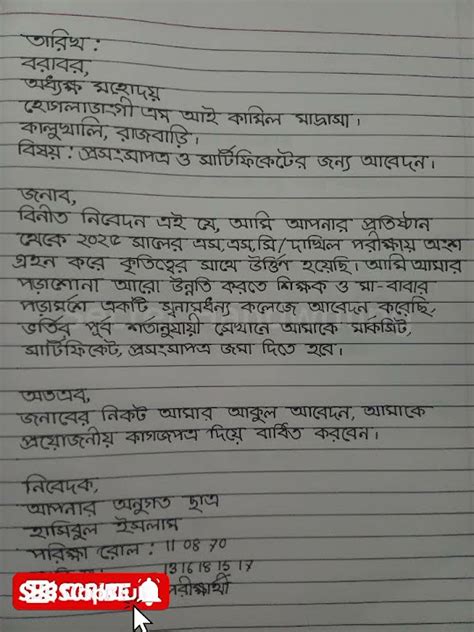 তারিখ :
বরাবর,
অধ্যক্ষ মহোদয়
হোগলাডাংগী এম আই কামিল মাদ্রাসা।
কালুখালি, রাজবাড়ি।
বিষয় : প্রসংসাপত্র ও সার্টিফিকেটের জন্য আবেদন।
জনাব,
বিনীত নিবেদন এই যে, আমি আপনার প্রতিষ্ঠান
থেকে ২০২৫ সালের এস,এস,সি/দাখিল পরীক্ষায় অংশ
গ্রহন করে কৃতিত্বের সাথে উর্ত্তিণ হয়েছি। আমি আমার
পড়াশোনা আরো উন্নতি করতে শিক্ষক ও মা-বাবার
পড়ামর্শে একটি স্বনামধন্য কলেজে আবেদন করেছি,
ভর্তির পূর্ব শর্তানুযায়ী সেখানে আমাকে মার্কসিট,
সার্টিফিকেট, প্রসংসাপত্র জমা দিতে হবে।
অতএব,
জনাবের নিকট আমার আকুল আবেদন, আমাকে
প্রয়োজনীয় কাগজপত্র দিয়ে বাধিত করবেন।
নিবেদক,
আপনার অনুগত ছাত্র
হাসিবুল ইসলাম
পরিক্ষা রোল : 11 08 70
1316181517
পরীক্ষার্থী